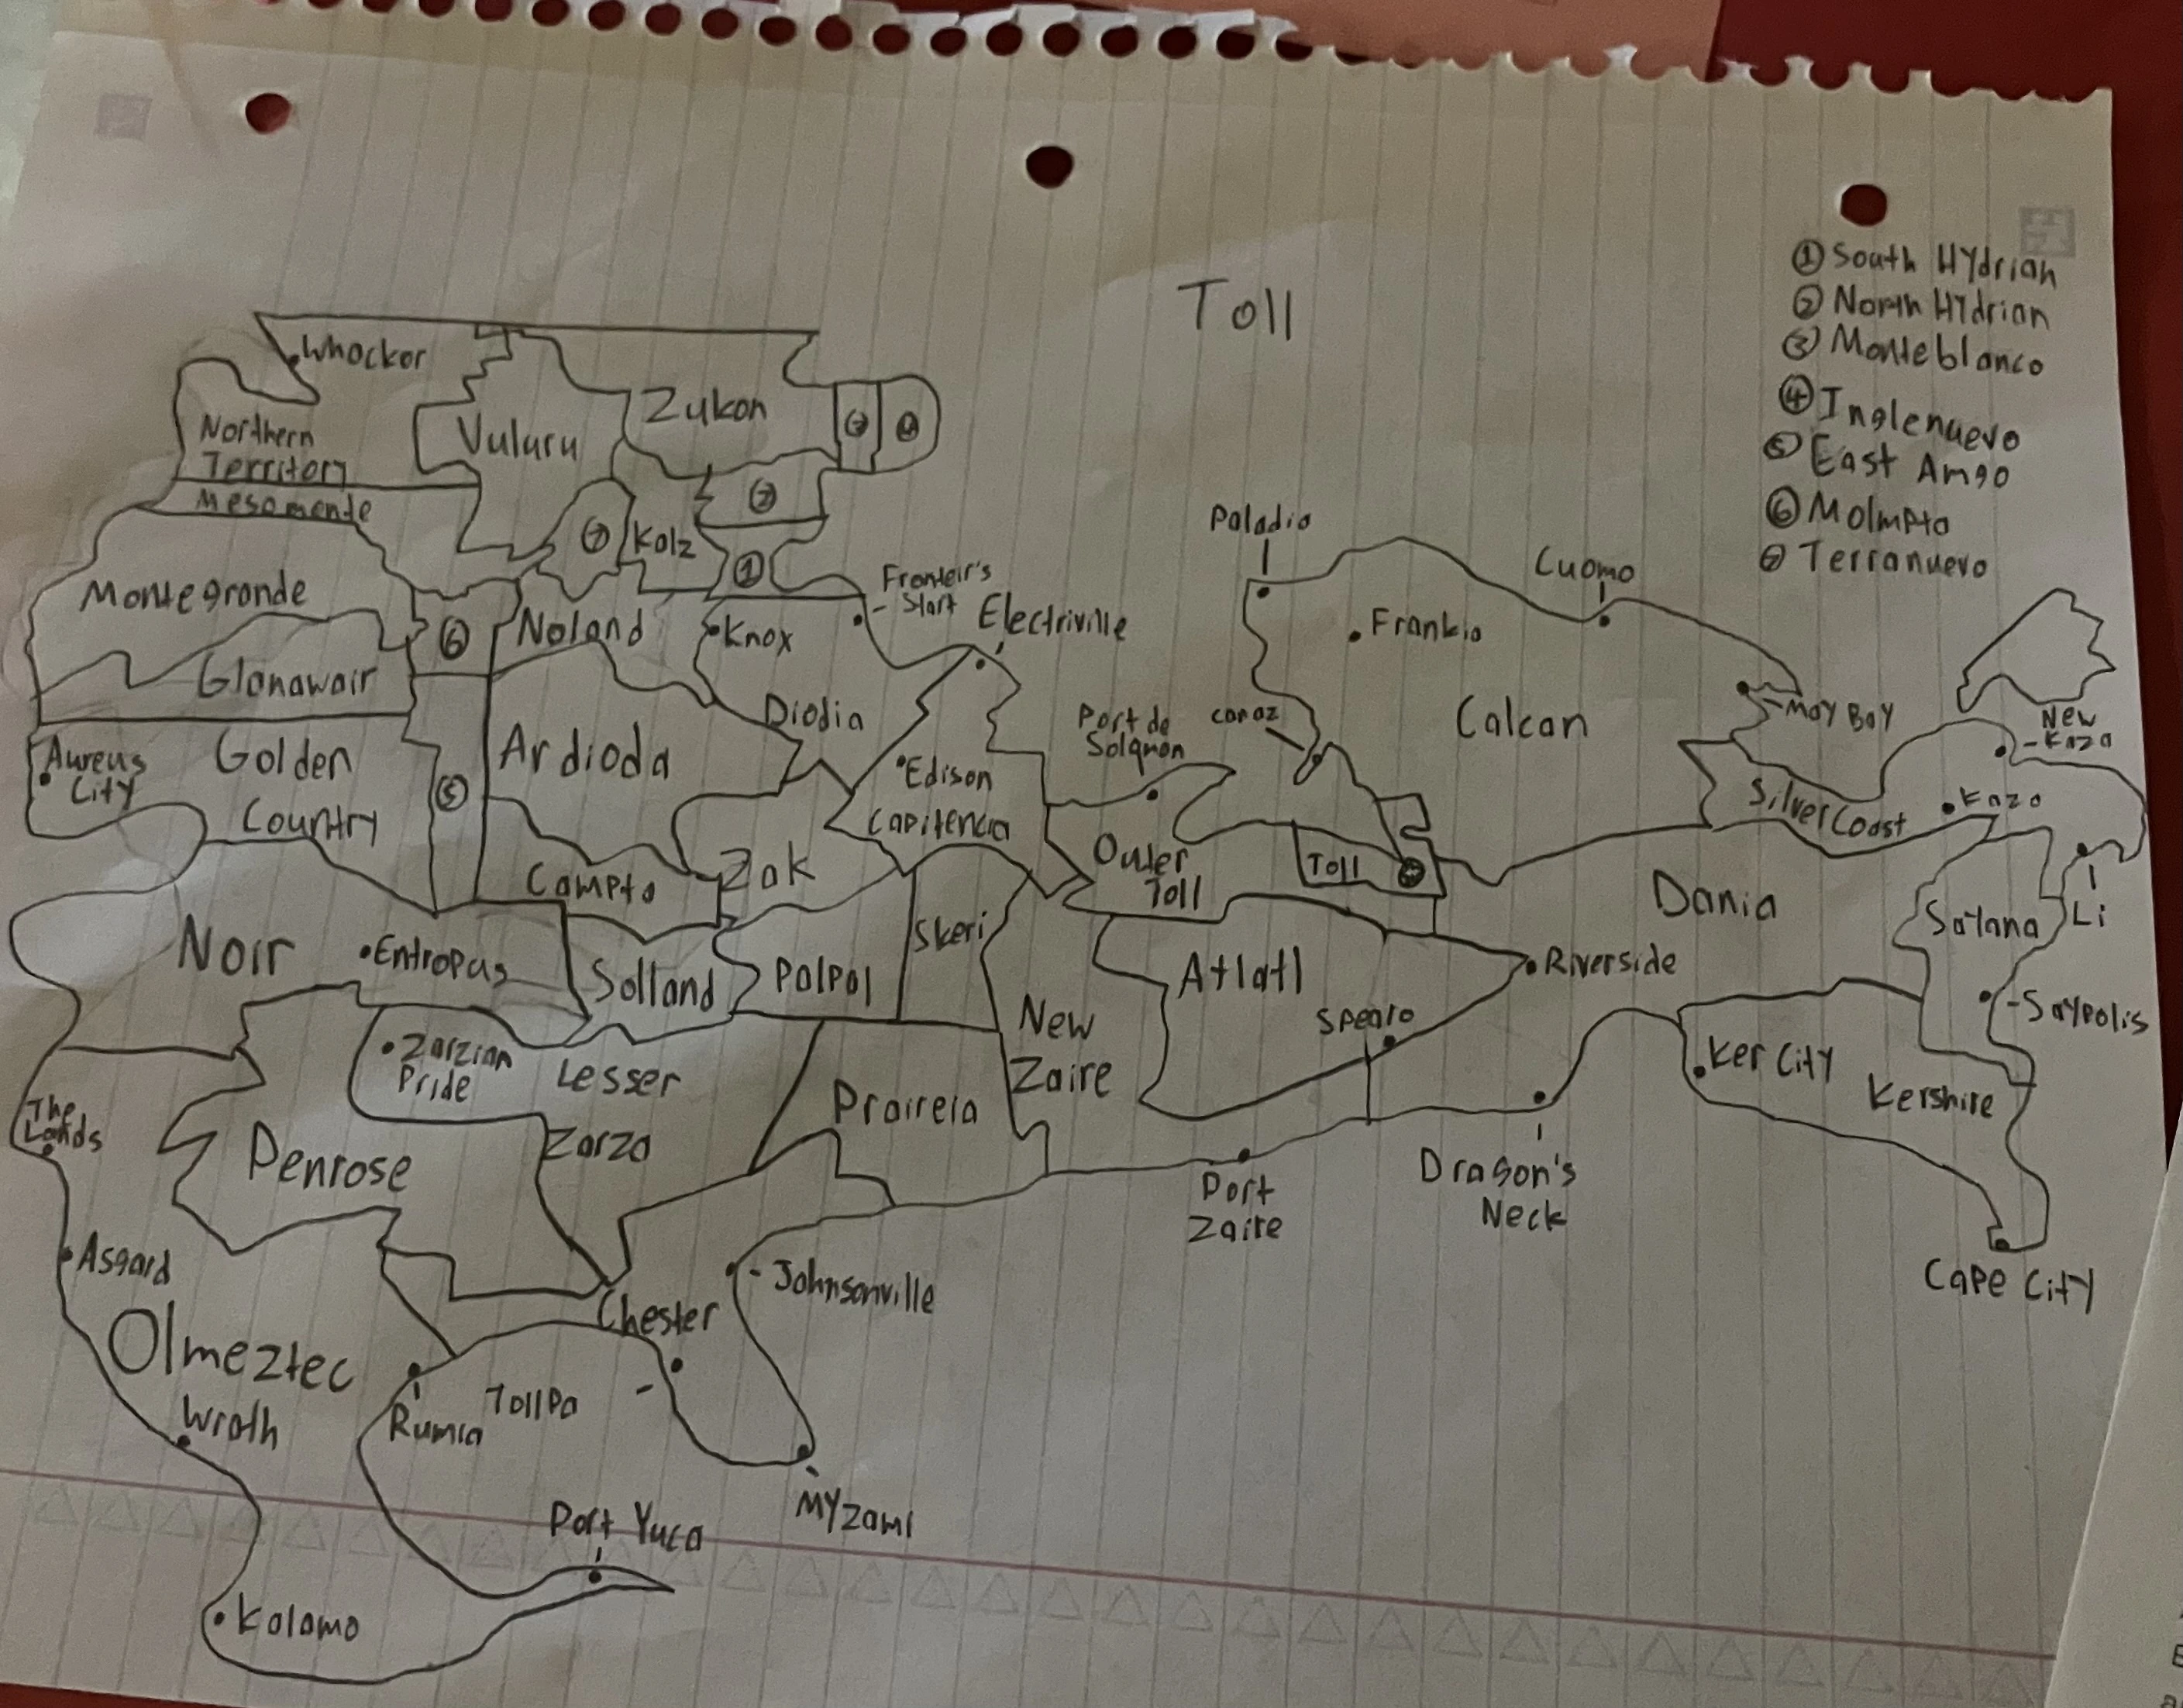 Toll
① South Hydrian
② North Hydrian
③ Monteblanco
④ Inglenuevo
⑤ East Amgo
⑥ Molmpto
⑦ Terranuevo
Whockor
Northern
Territory
Vuluru
Zukon
③
④
②
Mesomende
⑦
Kolz
①
Montegronde
⑥
Noland
Knox
Fronteir's
Start
Electriville
Glonawair
Diodia
Aureus
City
Golden
Country
⑤
Ardioda
Edison
Capitencia
Campto
Zok
Paladio
Cuomo
Frankio
Calcan
May Bay
Port de
Solqnon
Canaz
New
Kazo
Silver Coast
Kazo
Outer
Toll
Toll
Dania
Saylana
Li
Noir
Entropus
Solland
Polpol
Skeri
Atlatl
Riverside
Saypolis
New
Zaire
Spearo
Ker City
Kershire
Zarzian
Pride
Lesser
Zarzo
Praireia
The
Lands
Penrose
Port
Zaire
Dragon's
Neck
Cape City
Asgard
Johnsonville
Chester
Olmeztec
Wrath
Rumia
Tollpa
Myzami
Port Yuca
Kolomo